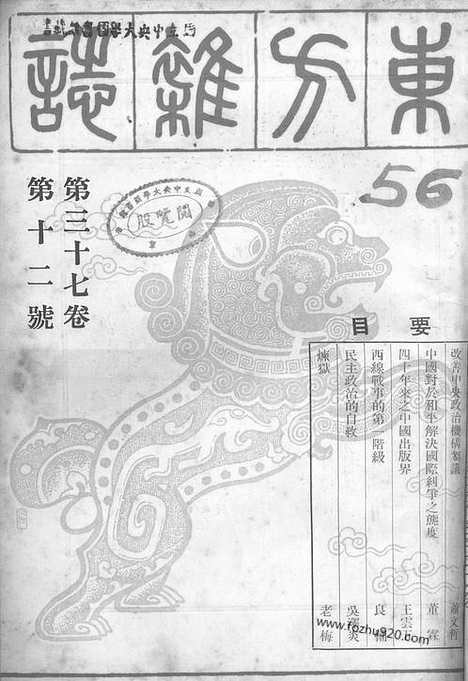 國立中央大學圖書館
東方雜誌
56
第三十七卷
第十二號
國立中央大學圖書館
閱覽股
要目
改善中央政治機構芻議 蕭文哲
中國對於和平解決國際糾爭之態度 董霖
四十年來之中國出版界 王雲
西線戰事的第一階級 良
民主政治的自救 吳澤炎
煉獄 老梅
www.fozhu920.com